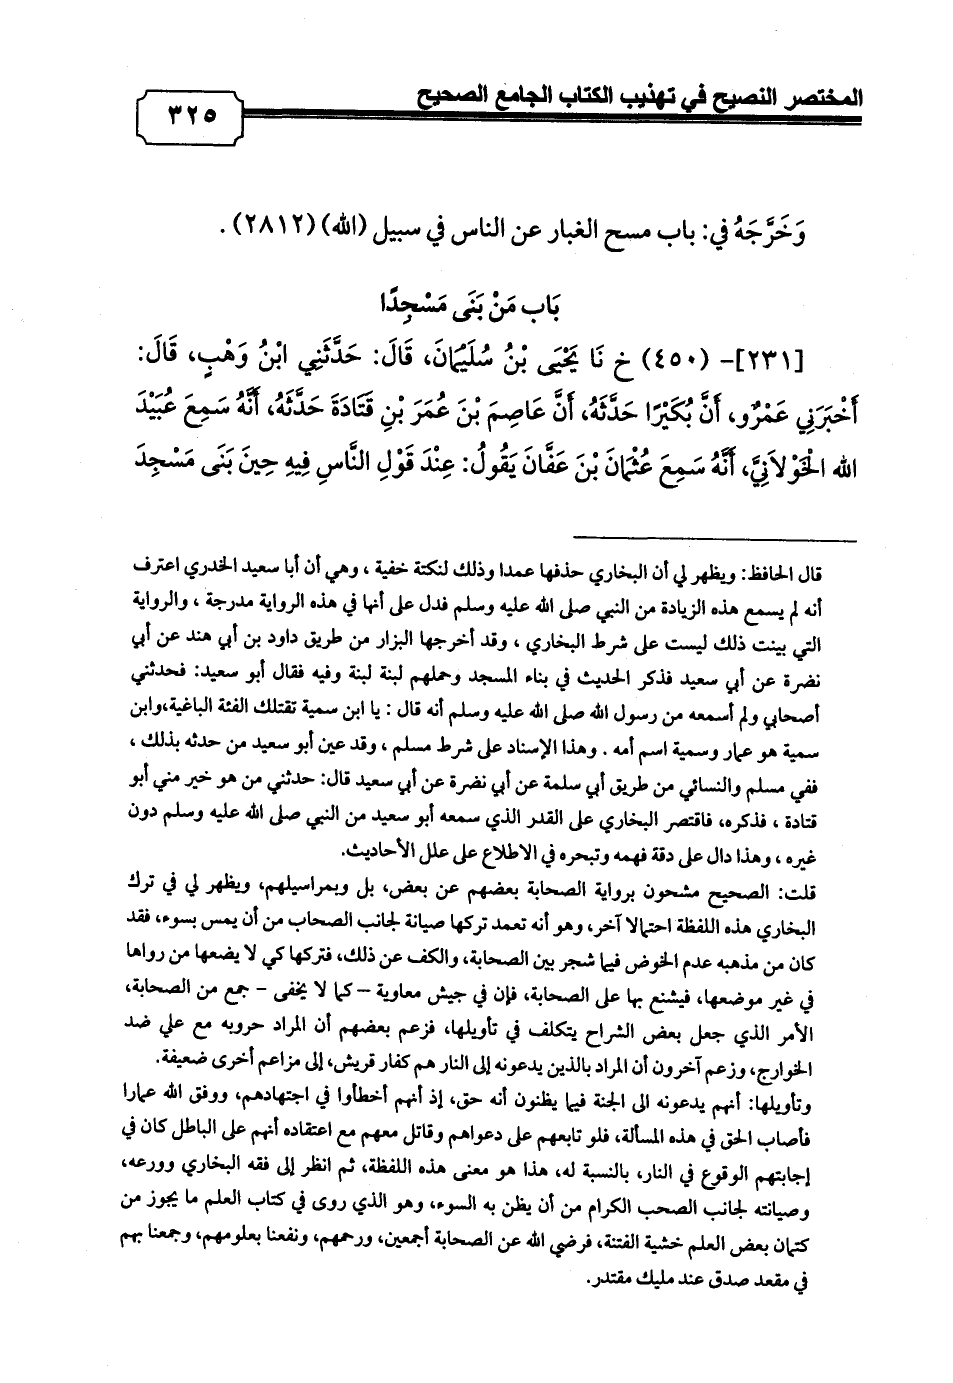 المختصر النصيح في تهذيب الكتاب الجامع الصحيح
٣٢٥
وَخَرَّجَهُ في: باب مسح الغبار عن الناس في سبيل (الله) (٢٨١٢) .
بَاب مَنْ بَنَى مَسْجِدًا
[٢٣١]- (٤٥٠) خ نَا يَحْيَى بْنُ سُلَيْمَانَ، قَالَ: حَدَّثَنِي ابْنُ وَهْبٍ، قَالَ:
أَخْبَرَنِي عَمْرٌو، أَنَّ بُكَيْرًا حَدَّثَهُ، أَنَّ عَاصِمَ بْنَ عُمَرَ بْنِ قَتَادَةَ حَدَّثَهُ، أَنَّهُ سَمِعَ عُبَيْدَ
الله الْخَوْلاَنِيَّ، أَنَّهُ سَمِعَ عُثْمَانَ بْنَ عَفَّانَ يَقُولُ: عِنْدَ قَوْلِ النَّاسِ فِيهِ حِينَ بَنَى مَسْجِدَ
قال الحافظ: ويظهر لي أن البخاري حذفها عمدا وذلك لنكتة خفية ، وهي أن أبا سعيد الخدري اعترف
أنه لم يسمع هذه الزيادة من النبي صلى الله عليه وسلم فدل على أنها في هذه الرواية مدرجة ، والرواية
التي بينت ذلك ليست على شرط البخاري ، وقد أخرجها البزار من طريق داود بن أبي هند عن أبي
نضرة عن أبي سعيد فذكر الحديث في بناء المسجد وحملهم لبنة لبنة وفيه فقال أبو سعيد: فحدثني
أصحابي ولم أسمعه من رسول الله صلى الله عليه وسلم أنه قال : يا ابن سمية تقتلك الفئة الباغية،وابن
سمية هو عمار وسمية اسم أمه . وهذا الإسناد على شرط مسلم ، وقد عين أبو سعيد من حدثه بذلك ،
ففي مسلم والنسائي من طريق أبي سلمة عن أبي نضرة عن أبي سعيد قال: حدثني من هو خير مني أبو
قتادة ، فذكره، فاقتصر البخاري على القدر الذي سمعه أبو سعيد من النبي صلى الله عليه وسلم دون
غيره ، وهذا دال على دقة فهمه وتبحره في الاطلاع على علل الأحاديث.
قلت: الصحيح مشحون برواية الصحابة بعضهم عن بعض، بل وبمراسيلهم، ويظهر لي في ترك
البخاري هذه اللفظة احتمالا آخر، وهو أنه تعمد تركها صيانة لجانب الصحاب من أن يمس بسوء، فقد
كان من مذهبه عدم الخوض فيما شجر بين الصحابة، والكف عن ذلك، فتركها كي لا يضعها من رواها
في غير موضعها، فيشنع بها على الصحابة، فإن في جيش معاوية –كما لا يخفى – جمع من الصحابة،
الأمر الذي جعل بعض الشراح يتكلف في تأويلها، فزعم بعضهم أن المراد حروبه مع علي ضد
الخوارج، وزعم آخرون أن المراد بالذين يدعونه إلى النار هم كفار قريش، إلى مزاعم أخرى ضعيفة.
وتأويلها: أنهم يدعونه الى الجنة فيما يظنون أنه حق، إذ أنهم أخطأوا في اجتهادهم، ووفق الله عمارا
فأصاب الحق في هذه المسألة، فلو تابعهم على دعواهم وقاتل معهم مع اعتقاده أنهم على الباطل كان في
إجابتهم الوقوع في النار، بالنسبة له، هذا هو معنى هذه اللفظة، ثم انظر إلى فقه البخاري وورعه،
وصيانته لجانب الصحب الكرام من أن يظن به السوء، وهو الذي روى في كتاب العلم ما يجوز من
كتمان بعض العلم خشية الفتنة، فرضي الله عن الصحابة أجمعين، ورحمهم، ونفعنا بعلومهم، وجمعنا بهم
في مقعد صدق عند مليك مقتدر.